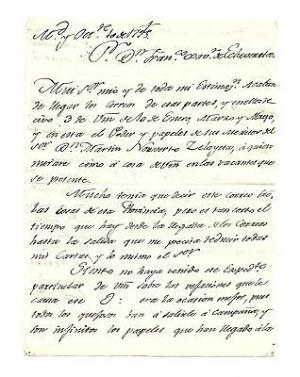 Sr. Dn. Fran.co Xav.r de Echeverría
Muy Sr. mio y de toda mi Estimaon. Acaban
de llegar los correos de esas partes, y en ellos re
civo 3 de Vm de 10 de Enero, Marzo y Mayo,
y en esta el Poder y papeles de sus meritos del
Sr. Dn. Martin Navarro Zelayeta, à quien
miraré como à cosa de Vm en las vacantes que
se presente.
Mucho tenia que decir este correo so
las cosas de esa Provincia, pero es tan corto el
tiempo que hay desde la llegada de los Correos
hasta la salida que me precisa reducir todas
mis Cartas, y lo mismo el Sor
Siento no haya venido el Expedte
particular de Vm sobre las vejaciones que le
causa ese era la ocasion mejor, pues
todos los quejosos han à salirle à Campaña, y
son infinitos los papeles que han llegado à la